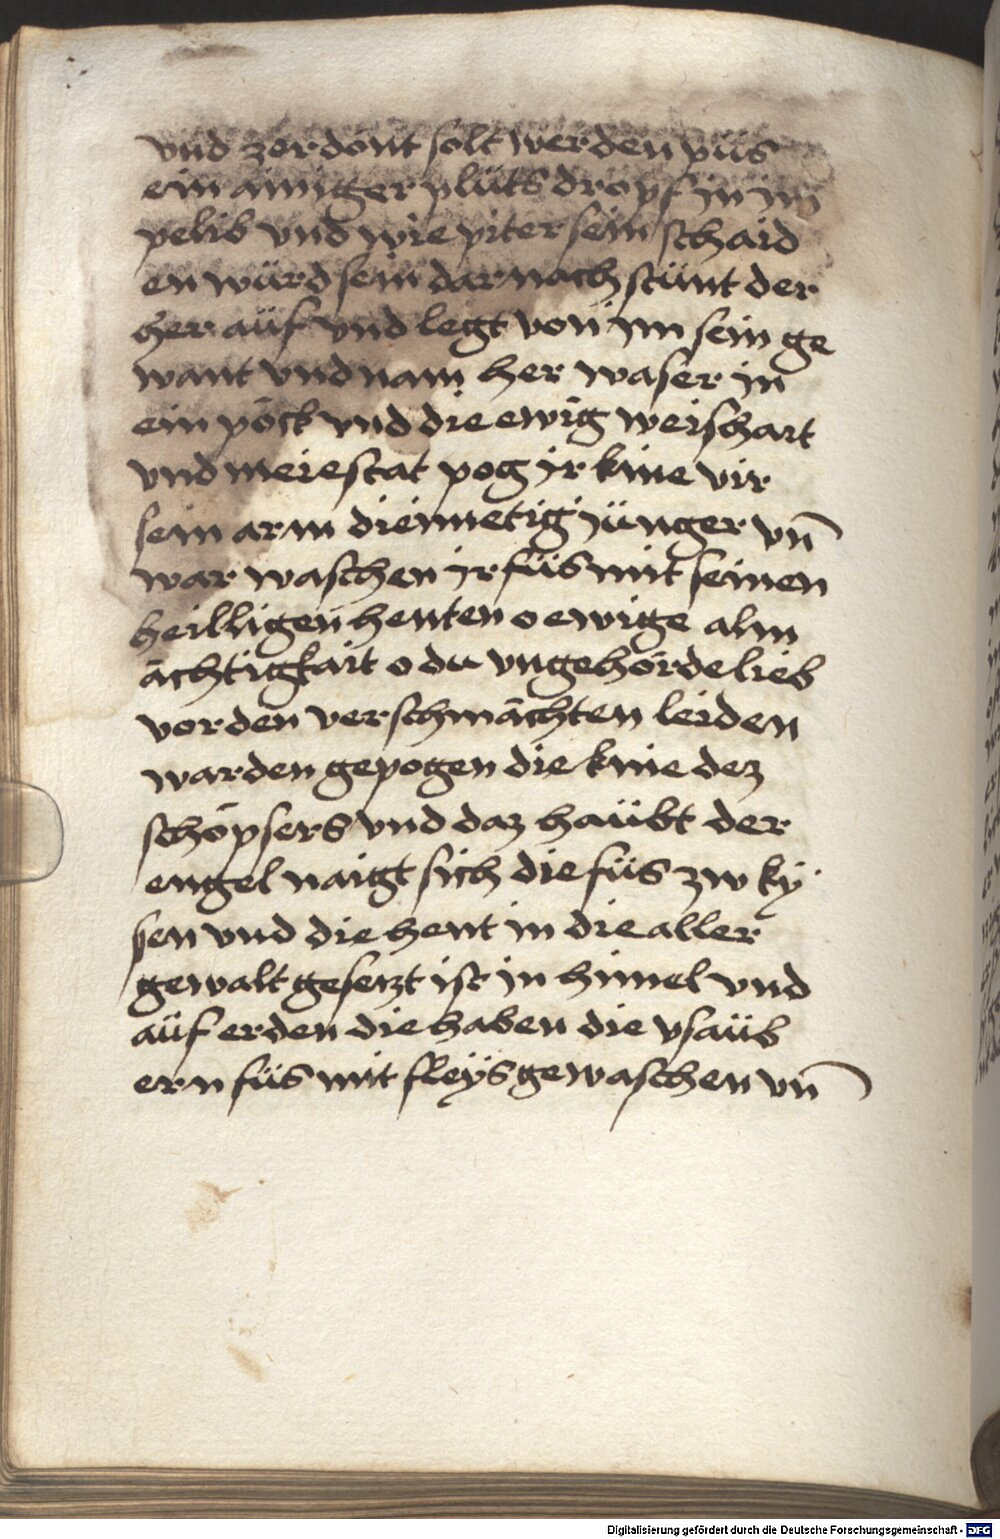 vnd zerdönt solt werden püs
ein ainiger plüts dropf in im
pelib vnd wie piter sein schaid
en würd sein dar nach stünt der
her aüf vnd legt von im sein ge
want vnd nam her waser in
ein pöck vnd die ewig weischait
vnd meiestat pog ir knie vir
sein arm diemietig jünger vn̄
war waschen ir füs mit seinen
heilligen henten o ewige alm
ächtigkait o du vngehörde lieb
vor den verschmächten leiden
warden gepogen die knie dez
schöpfers vnd daz haübt der
engel naigt sich die füs zw kÿ
sen vnd die hent in die aller
gewalt gesetzt ist in himel vnd
aüf erden die haben die vsaüb
ern füs mit fleÿs gewaschen vn̄
Digitalisierung gefördert durch die Deutsche Forschungsgemeinschaft - DFG